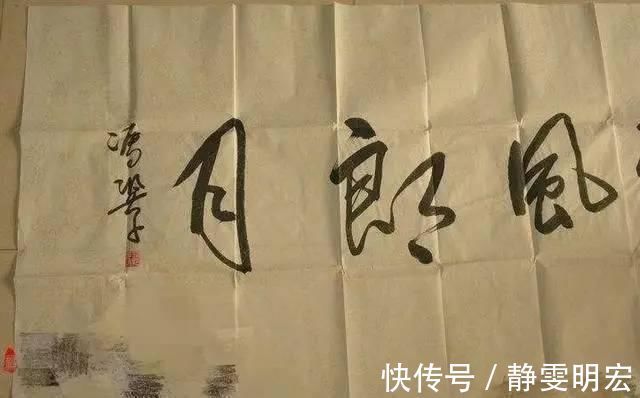 風朗月
馮鞏
快传号 / 静雯明宏